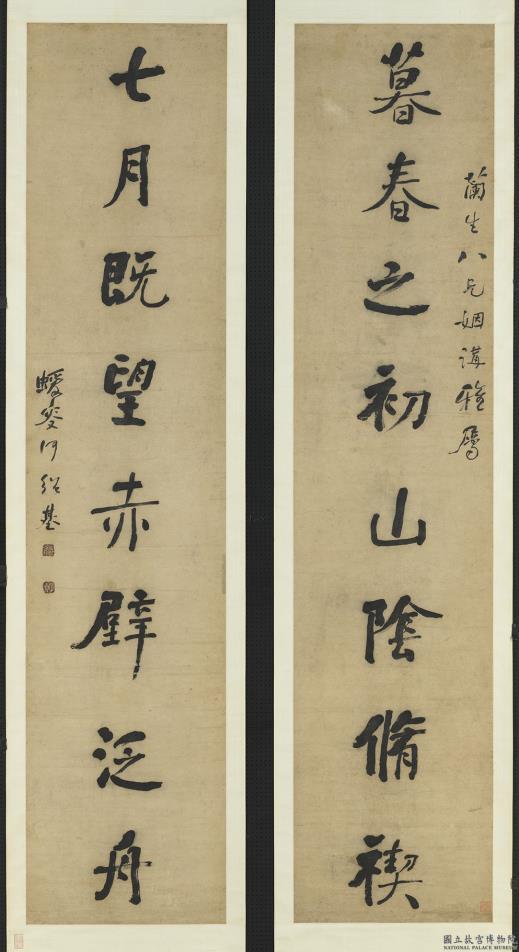 蘭生八兄姻講雅屬
暮春之初山陰脩禊
七月既望赤壁泛舟
蝯叟何紹基
國立故宮博物院
NATIONAL PALACE MUSEUM